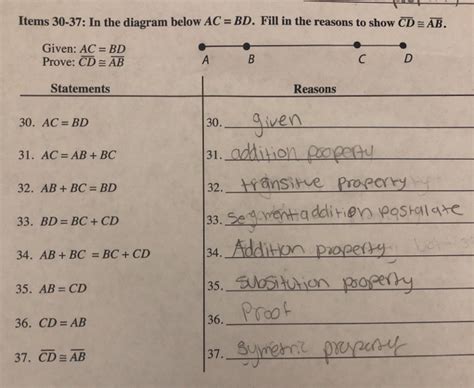 Items 30-37: In the diagram below AC = BD. Fill in the reasons to show CD ≅ AB.
Given: AC = BD
Prove: CD ≅ AB
A B C D
Statements Reasons
30. AC = BD 30. given
31. AC = AB + BC 31. addition property
32. AB + BC = BD 32. transitive property
33. BD = BC + CD 33. segment addition postalate
34. AB + BC = BC + CD 34. Addition property
35. AB = CD 35. subsitution property
36. CD = AB 36. Proof
37. CD ≅ AB 37. symetric property